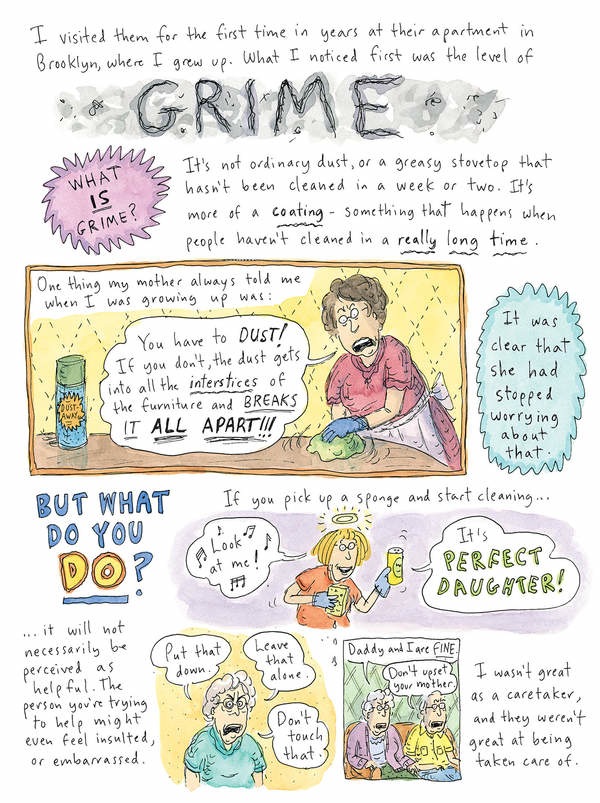 I visited them for the first time in years at their apartment in
Brooklyn, where I grew up. What I noticed first was the level of
GRIME
WHAT
IS
GRIME?
It's not ordinary dust, or a greasy stovetop that
hasn't been cleaned in a week or two. It's
more of a coating - something that happens when
people haven't cleaned in a really long time.
One thing my mother always told me
when I was growing up was:
You have to DUST!
If you don't, the dust gets
into all the interstices of
the furniture and BREAKS
IT ALL APART!!!
DUST-
AWAY
It was
clear that
she had
stopped
worrying
about
that.
BUT WHAT
DO YOU
DO?
If you pick up a sponge and start cleaning...
Look
at me!
It's
PERFECT
DAUGHTER!
...it will not
necessarily be
perceived as
helpful. The
person you're trying
to help might
even feel insulted,
or embarrassed.
Put that
down.
Leave
that
alone.
Don't
touch
that.
Daddy and I are FINE.
Don't upset
your mother.
I wasn't great
as a caretaker,
and they weren't
great at being
taken care of.